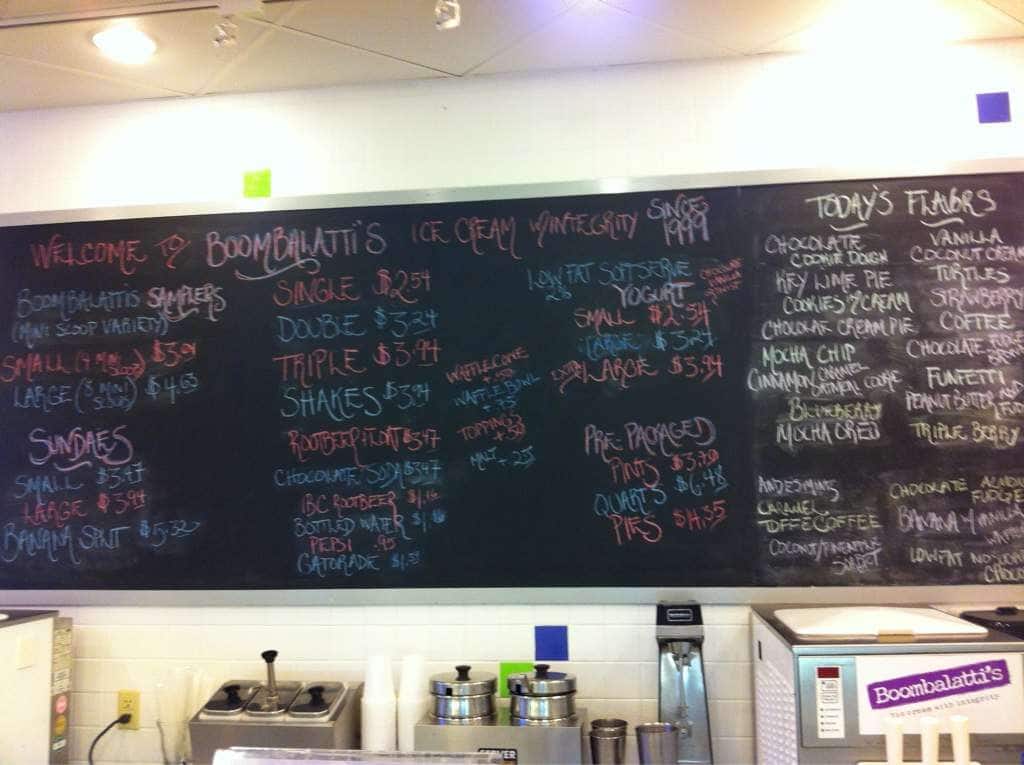 WELCOME TO BOOMBALATTI'S ICE CREAM W/INTEGRITY SINCE 1999
BOOMBALATTI'S SAMPLERS
(MINI SCOOP VARIETY)
SMALL (4 MINI SCOOPS)
LARGE $4.63
SUNDAES
SMALL $3.47
LARGE $3.94
BANANA SPLIT $5.32
SINGLE $2.54
DOUBLE $3.24
TRIPLE $3.94
SHAKES $3.94
ROOTBEER FLOAT $3.47
CHOCOLATE SODA $3.47
IBC ROOTBEER
BOTTLED WATER
PEPSI .95
GATORADE
WAFFLECONE
WAFFLE BOWL
TOPPING
LOWFAT SOFTSERVE
YOGURT
SMALL $2.54
LARGE $3.24
EXTRA LARGE $3.94
PRE-PACKAGED
PINTS
QUARTS $6.48
PIES $14.35
TODAY'S FLAVORS
CHOCOLATE
COOKIE DOUGH
KEY LIME PIE
COOKIES & CREAM
CHOCOLATE CREAM PIE
MOCHA CHIP
CINNAMON CARAMEL
OATMEAL COOKIE
BLUEBERRY
MOCHA OREO
VANILLA
COCONUT CREAM
TURTLES
STRAWBERRY
COFFEE
CHOCOLATE FUDGE
FUNFETTI
PEANUT BUTTER
TRIPLE BERRY
ANDES MINT
CARAMEL
TOFFEE COFFEE
COCONUT/PINEAPPLE
CHOCOLATE ALMOND
FUDGE
BANANA
LOWFAT
Boombalatti's
ice cream with integrity
SERVER